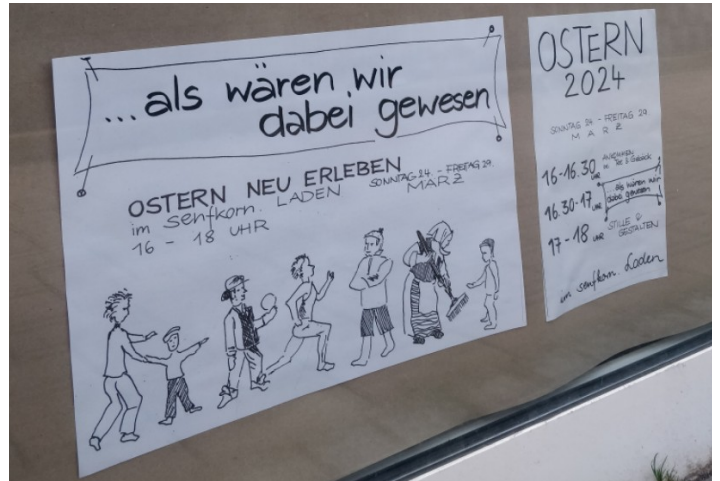 ...als wären wir
dabei gewesen
OSTERN NEU ERLEBEN
im senfkorn. LADEN
16 - 18 UHR
SONNTAG 24. - FREITAG 29.
MÄRZ
OSTERN
2024
SONNTAG 24. - FREITAG 29.
MÄRZ
16-16.30 UHR ANKOMMEN
bei Tee & Gebäck
16.30-17 UHR als wären wir
dabei gewesen
17-18 UHR STILLE &
GESTALTEN
im senfkorn. Laden